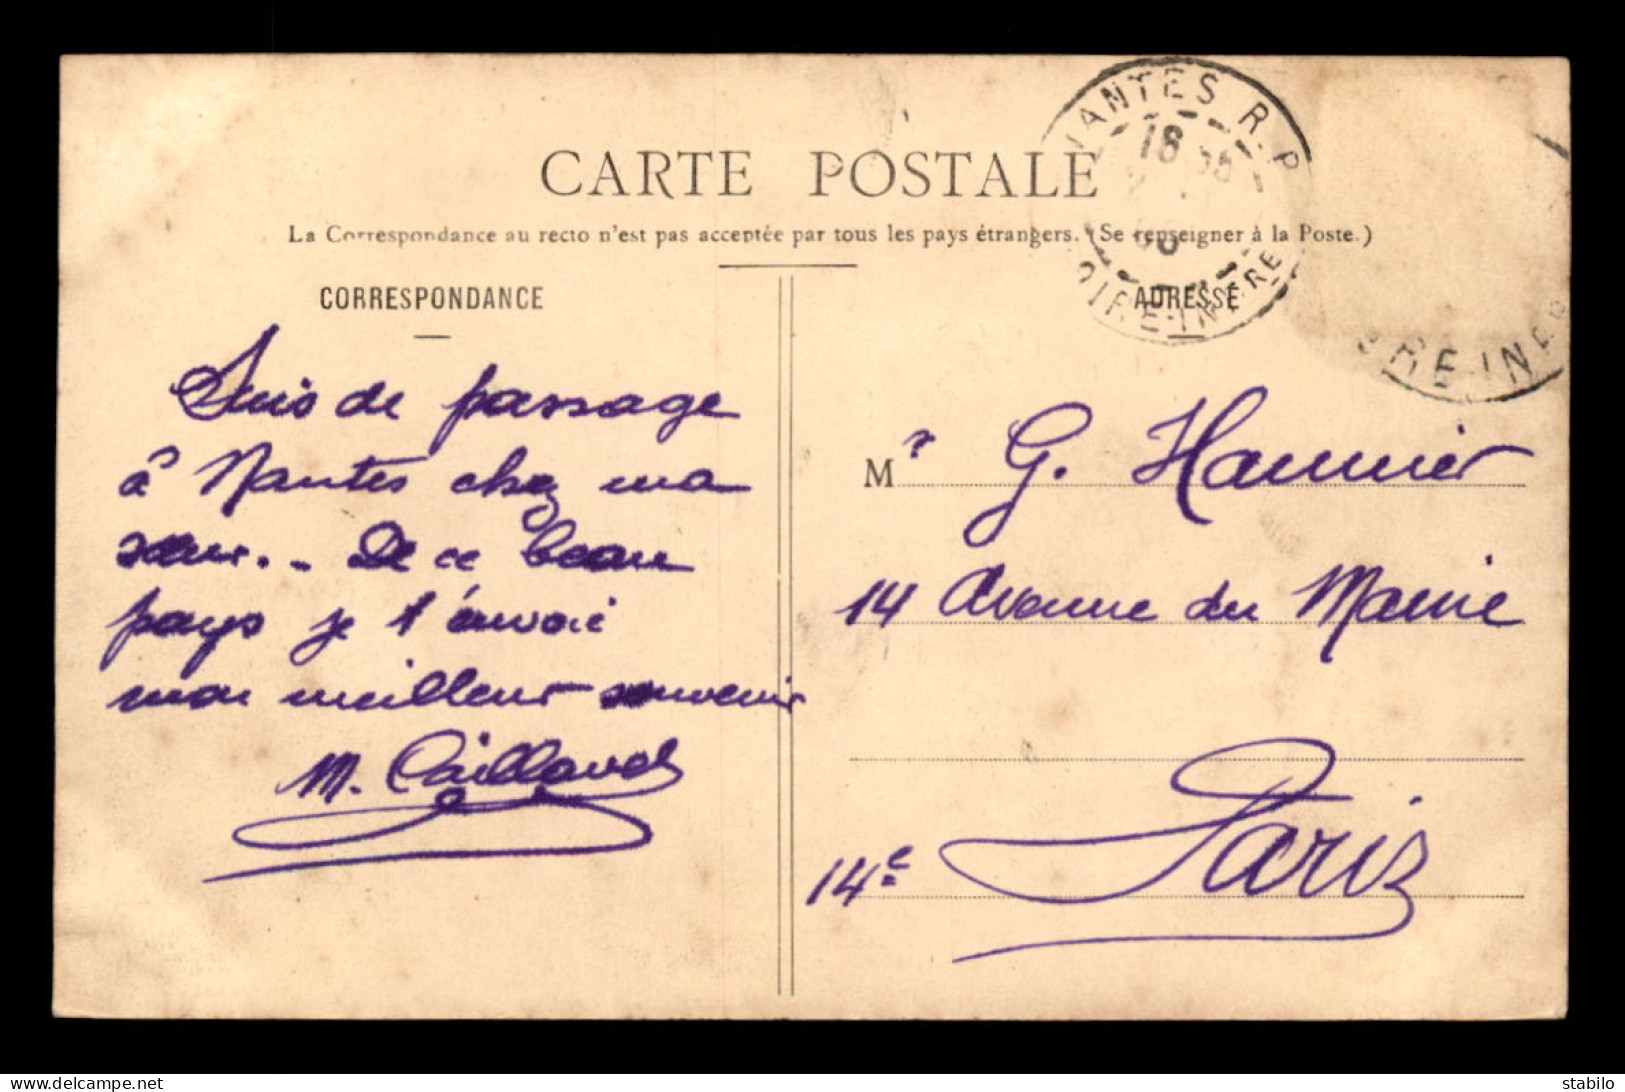 CARTE POSTALE
La Correspondance au recto n'est pas acceptée par tous les pays étrangers. (Se renseigner à la Poste.)
CORRESPONDANCE
Suis de passage
à Nantes chez ma
sœur.. - De ce beau
pays je t'envoie
mon meilleur souvenir
M. Caillaud
NANTES R.P.
18
LOIRE-INFRE
ADRESSE
Mr G. Haumier
14 Avenue du Maine
14e Paris
stabilo